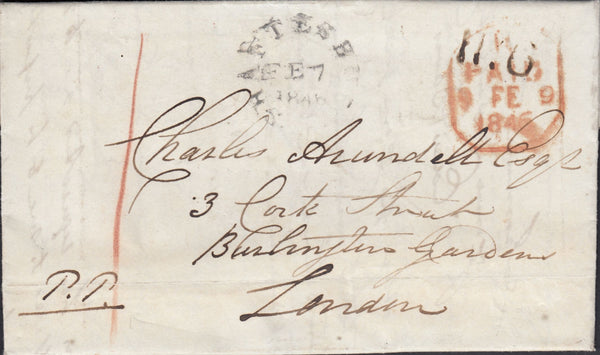 SHAFTESBURY
FE 7
1846
H.G
PAID
9 FE 9
1846
Charles Arundell Esqr
3 Cork Street
Burlington Gardens
London
P.P.